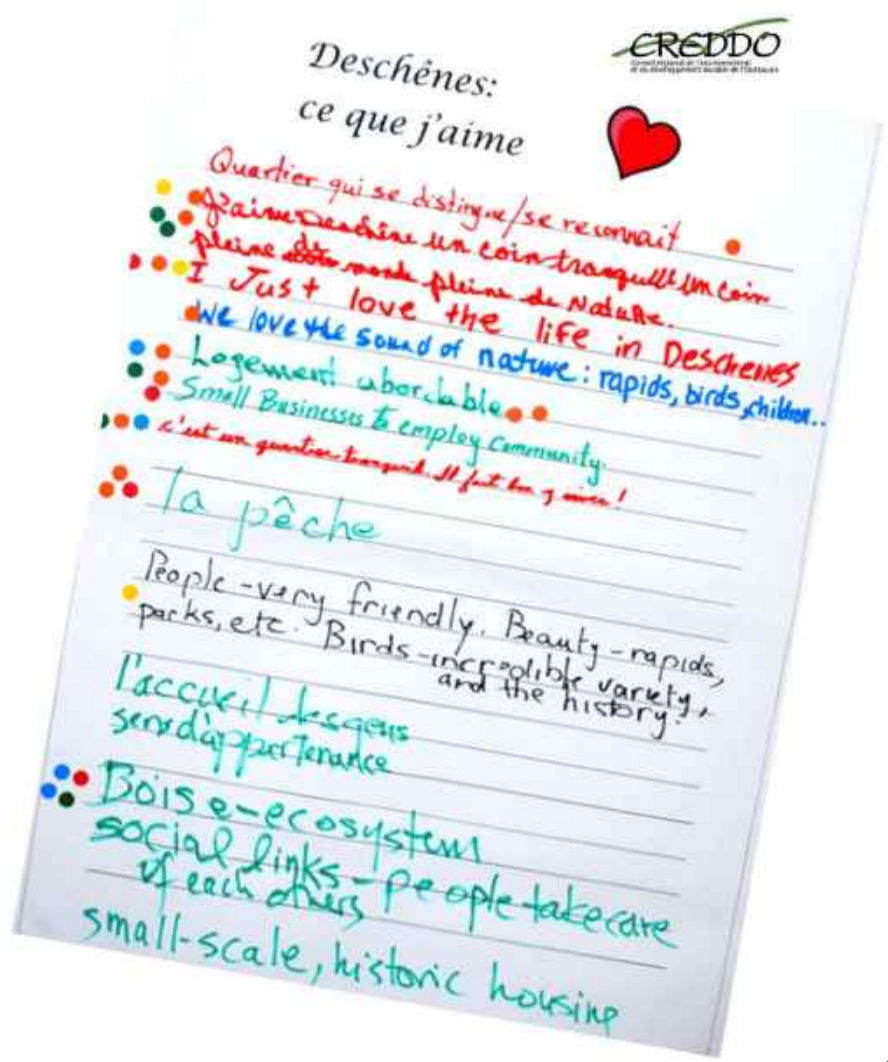 CREDDO
Conseil régional de l'environnement
et du développement durable de l'Outaouais
Deschênes:
ce que j'aime
Quartier qui se distingue/se reconnait
J'aime Deschêne un coin tranquille un coin
pleine de monde pleine de Nature.
I Just love the life in Deschenes
We love the sound of nature: rapids, birds, children..
Logement abordable
Small Businesses to employ Community.
c'est un quartier tranquil. Il fait bon y vivre!
la pêche
People - very friendly. Beauty - rapids,
parks, etc. Birds - incredible variety,
and the history!
l'accueil des gens
sens d'appartenance
Boise - ecosystem
social links - people take care
of each others
small-scale, historic housing